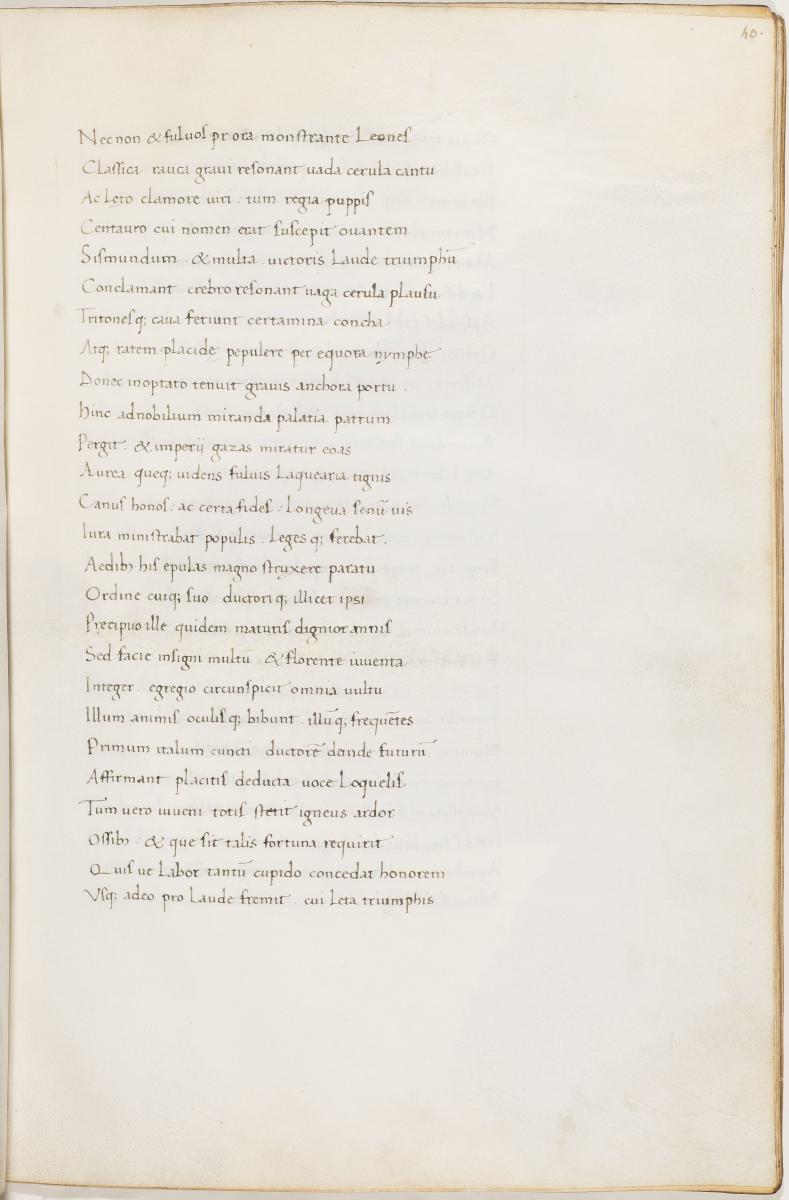 40.
Nec non & fuluos prora monstrante Leones
Classica . rauca graui resonant uada cerula cantu
Ac Leto clamore uiri . tum regia puppis
Centauro cui nomen erat suscepit ouantem
Sismundum . & multa uictoris Laude triumphū
Conclamant crebro resonant uaga cerula plausu
Tritonesq; caua feriunt certamina concha
Atq; ratem placidę pepulere per equora nymphe
Donec inoptato tenuit grauis anchora portu .
Hinc adnobilium miranda palatia patrum
Pergit . & imperij gazas miratur eoas
Aurea queq; uidens fuluis Laquearia tignis
Canus honos . ac certa fides . Longeua senū uis
Iura ministrabat populis . Leges q; ferebat .
Aedib; his epulas magno struxere paratu
Ordine cuiq; suo . ductori q; illicet ipsi
Pręcipuo ille quidem maturis dignior annis
Sed facie insigni multū & florente iuuenta
Integer . egregio circunspicit omnia uultu
Illum animis oculis q; bibunt . illū q; frequētes
Primum italum cuncti . ductorē deinde futurū
Affirmant placitis deducta uoce Loquelis.
Tum uero iuueni totis stetit igneus ardor
Ossib; & que sit talis fortuna requirit
Quis ue Labor tantū cupido concedat honorem
Vsq; adeo pro Laude fremit . cui Leta triumphis